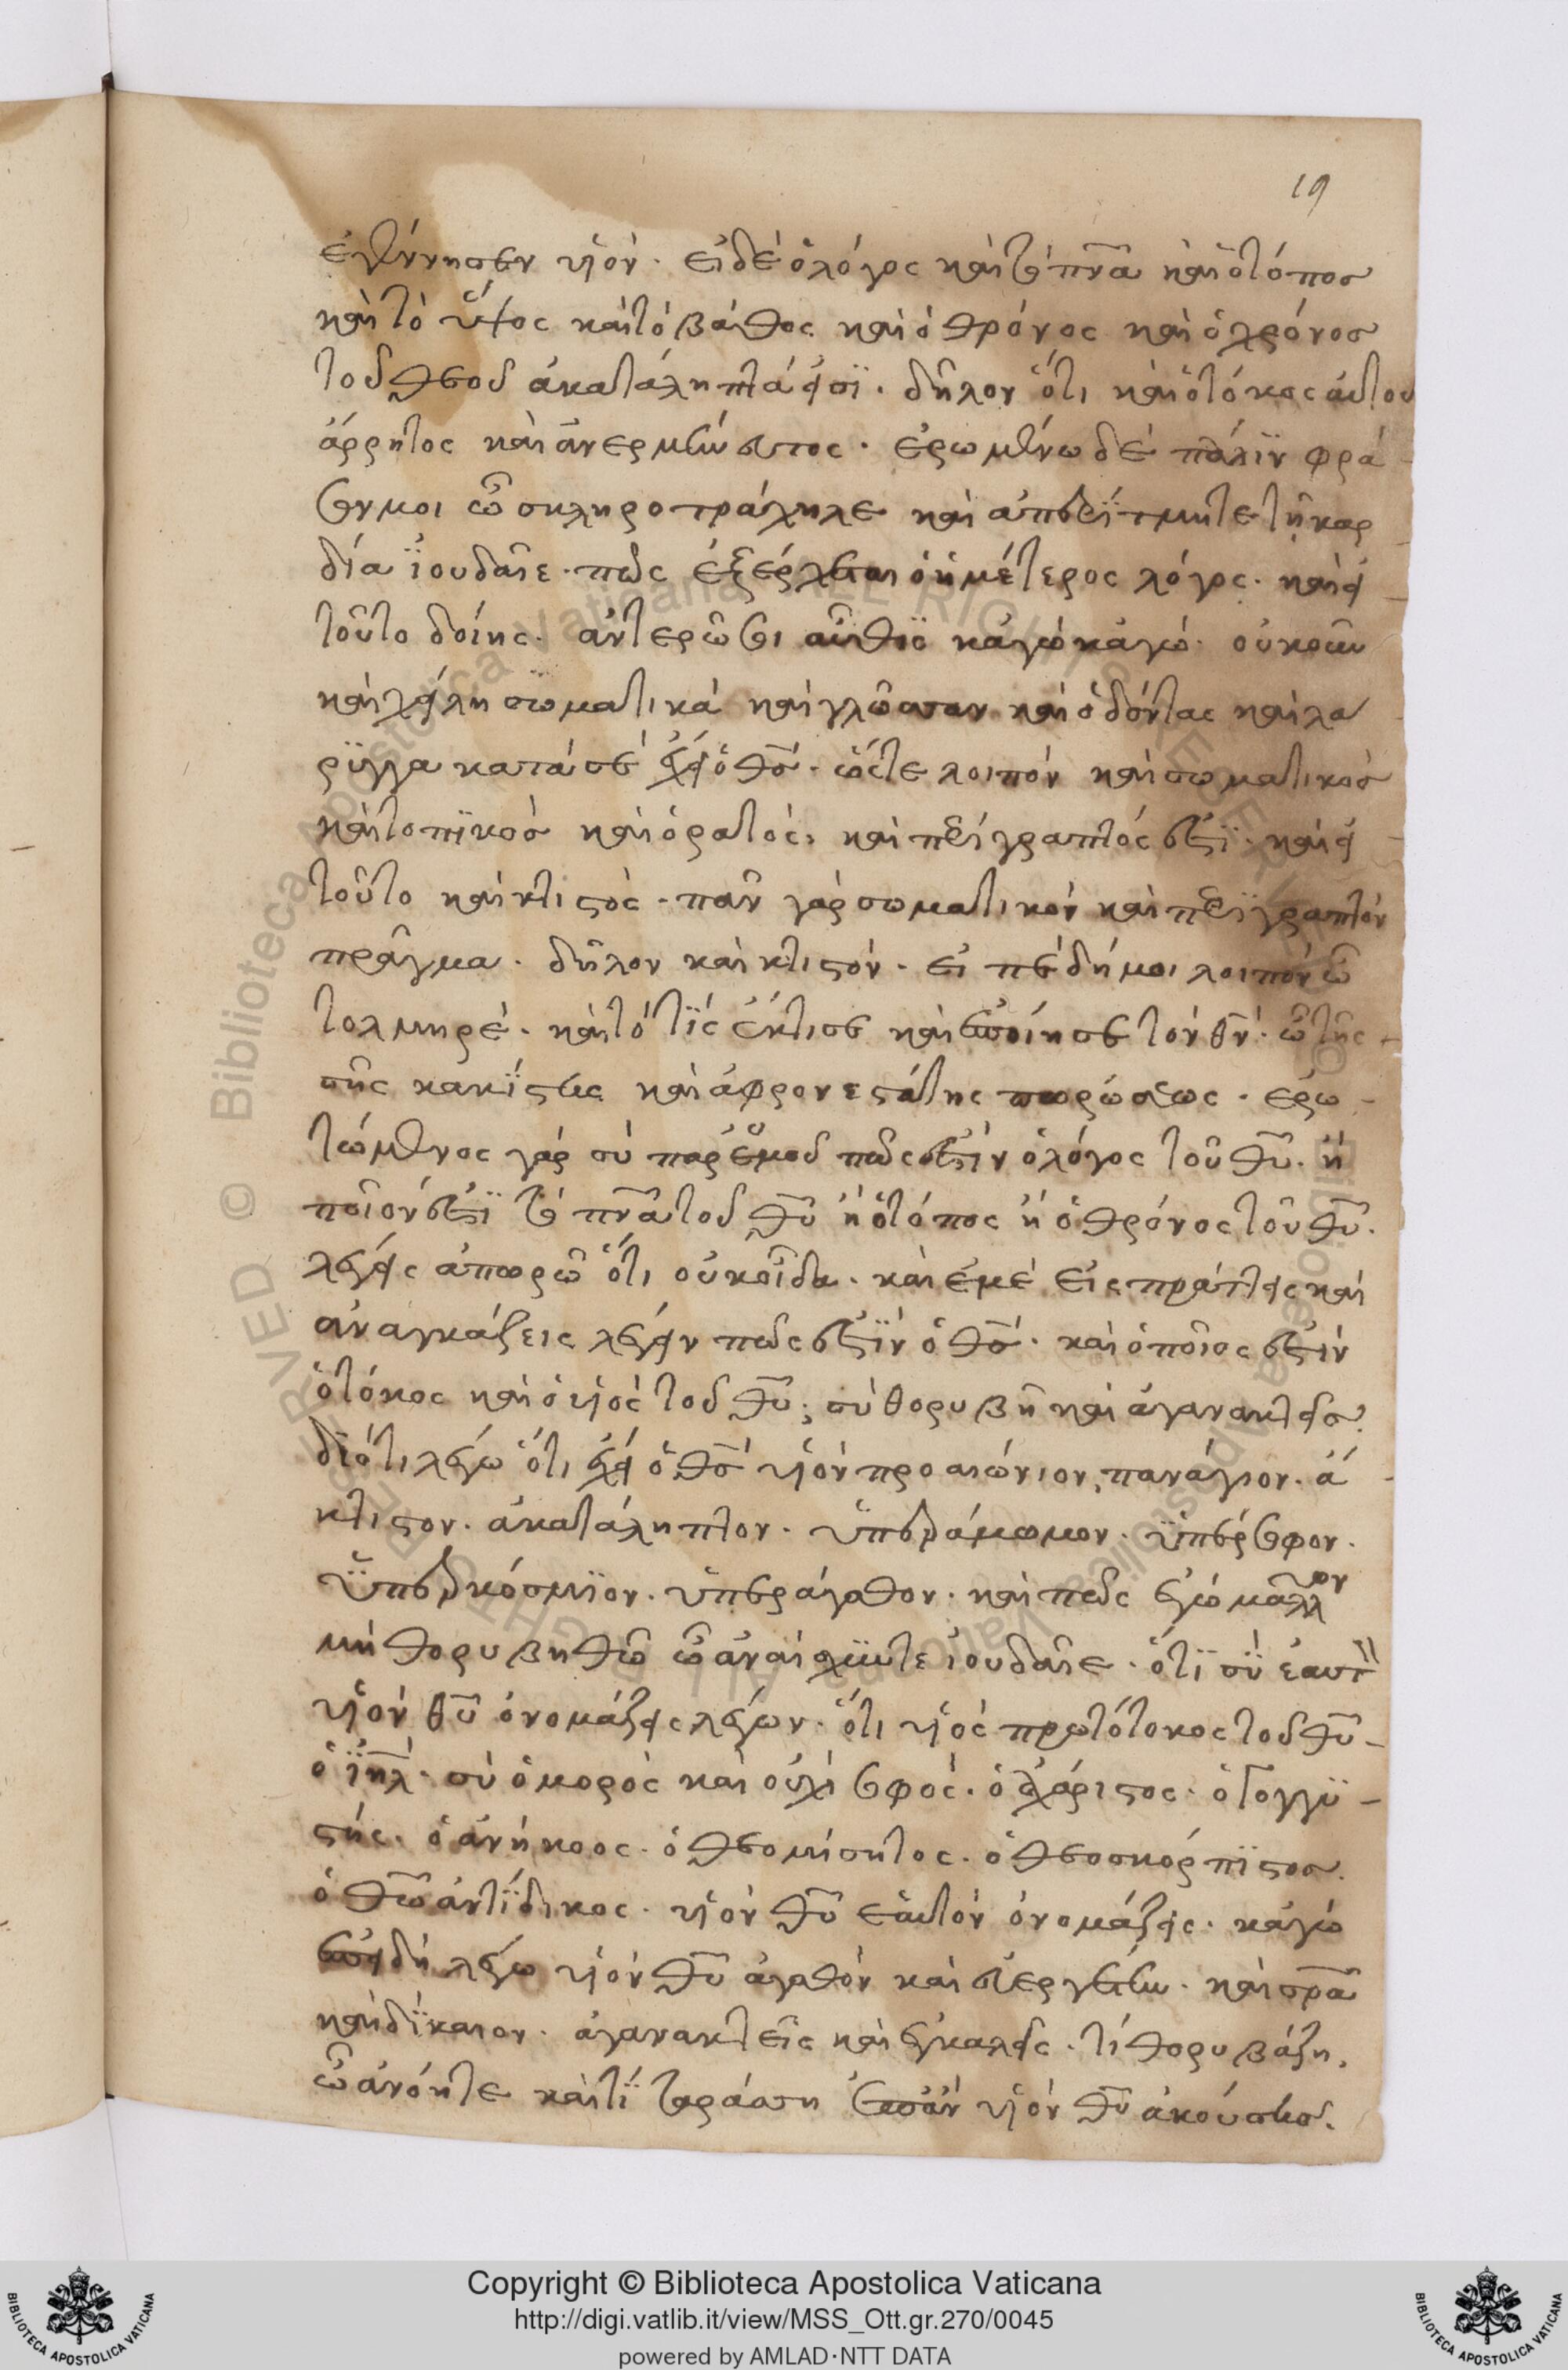 19
ἐγέννησεν υἱόν. εἰ δὲ ὁ λόγος καὶ τὸ πνᾶ καὶ ὁ τόπος
καὶ τὸ ὕψος καὶ τὸ βάθος καὶ ὁ θρόνος καὶ ὁ χρόνος
τοῦ θεοῦ ἀκατάληπτά εἰσϊ. δῆλον ὅτι καὶ ὁ τόκος αὐτοῦ
ἄρρητος καὶ ἀνερμήνευτος. ἐρωμένω δὲ πάλϊν φρά
σον μοι ὦ σκληροτράχηλε καὶ ἀπερίτμητε τῆ καρ
δία ϊουδαῖε. πῶς ἐξέρχεται ὁ ἡμέτερος λόγος. καὶ εἰ
τοῦτο δοίης. ἀντερῶ σοι αὖθις κἀγὼ κἀγώ. οὐκοῦν
καὶ χείλη σωματικὰ καὶ γλῶσσαν καὶ ὀδόντας καὶ λά
ρϋγγα κατὰ σὲ ἔχει ὁ θς. ὥστε λοιπὸν καὶ σωματικὸς
καὶ τοπϊκὸς καὶ ὁρατός, καὶ περίγραπτός ἐστϊ. καὶ εἰ
τοῦτο καὶ κτιστός. πᾶν γὰρ σωματικὸν καὶ περϊγραπτὸν
πρᾶγμα. δῆλον καὶ κτιστόν. εἰπὲ δή μοι λοιπὸν ὦ
τολμηρέ. καὶ τὸ τϊς ἔκτισε καὶ ἐποίησε τὸν θν. ὦ τῆς
σῆς κακΐστης καὶ ἀφρονεστάτης πωρώσεως. ἐρω
τώμενος γὰρ σὺ παρ' ἐμοῦ πῶς ἐστὶν ὁ λόγος τοῦ θυ. ἢ
ποῖον ἐστϊ τὸ πνᾶ τοῦ θυ ἢ ὁ τόπος ἢ ὁ θρόνος τοῦ θυ.
λέγεις ἀπορῶ ὅτι οὐκ οἶδα. καὶ ἐμὲ εἰσπράττεις καὶ
ἀναγκάζεις λέγειν πῶς ἐστϊν ὁ θς. καὶ ὁποῖος ἐστὶν
ὁ τόκος καὶ ὁ υἱὸς τοῦ θυ; σὺ θορυβῆ καὶ ἀγανακτεῖς.
διότι λέγω ὅτι ἔχει ὁ θς υἱὸν προαιώνιον, πανάγιον. ἄ
κτιστον. ἀκατάληπτον. ὑπεράμωμον. ὑπέρσοφον.
ὑπερκόσμϊον. ὑπεράγαθον. καὶ πῶς ἐγὼ μᾶλλον
μὴ θορυβηθῶ ὦ ἀναίσχυντε ἰουδαῖε. ὅτϊ σὺ ἑαυτ
υἱὸν θυ ὀνομάζεις λέγων. ὅτι υἱὸς πρωτότοκος τοῦ θυ
ὁ ιηλ. σὺ ὁ μορὸς καὶ οὐχὶ σοφός. ὁ ἀχάριστος. ὁ γογγϋ
στής. ὁ ἀνήκοος. ὁ θεομίσητος. ὁ θεοσκόρπϊστος.
ὁ θῶ ἀντίδικος. υἱὸν θυ ἑαυτὸν ὀνομάζεις. κἀγὼ
ἐπειδὴ λέγω υἱὸν θυ ἀγαθὸν καὶ εὐεργέτην. καὶ σρα
καὶ δίκαιον. ἀγανακτεῖς καὶ ἐγκαλεῖς. τί θορυβάζη,
ὦ ἀνόητε καὶ τί ταράσση ἐπὰν υἱὸν θυ ἀκούσεις.
Copyright © Biblioteca Apostolica Vaticana
http://digi.vatlib.it/view/MSS_Ott.gr.270/0045
powered by AMLAD·NTT DATA